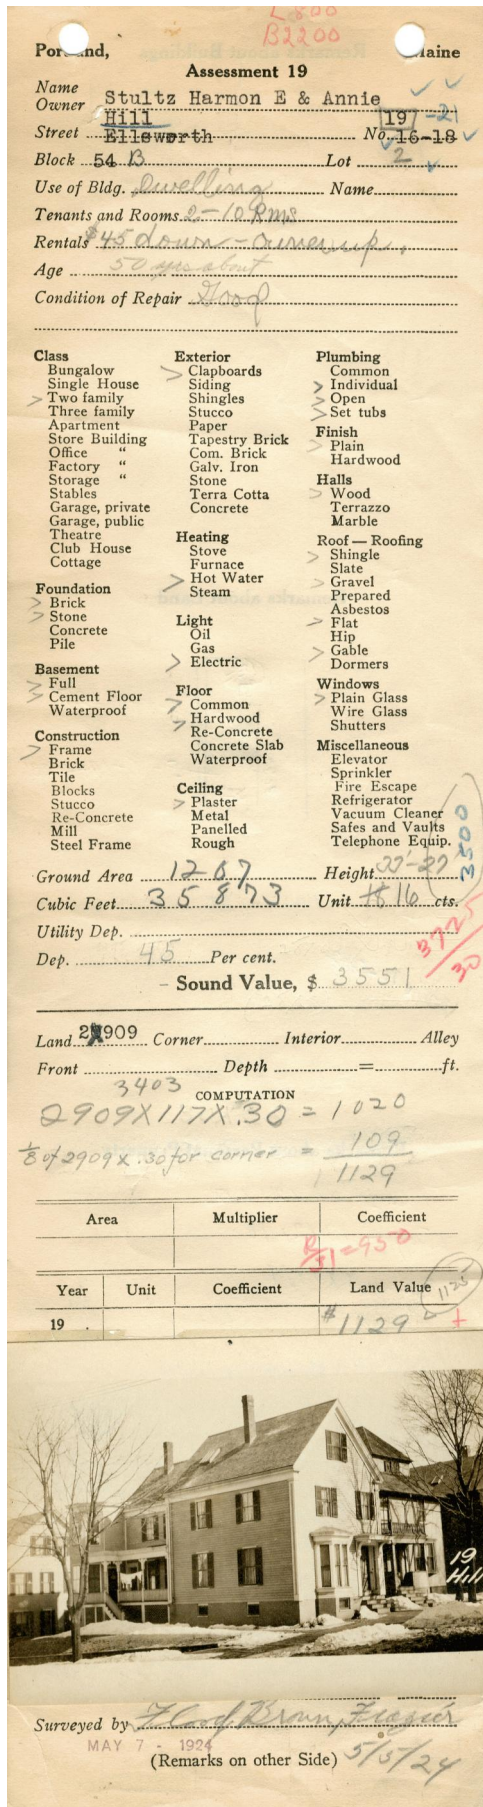 L 800
B2200
Portland, Maine
Assessment 19
Name
Owner Stultz Harmon E & Annie
Hill 19 -21
Street Ellsworth No. 16-18
Block 54 B Lot 2
Use of Bldg. Dwelling Name
Tenants and Rooms 2-10 Rms
Rentals $45 down - owner up.
Age 50 yrs about
Condition of Repair Good
Class
Bungalow
Single House
> Two family
Three family
Apartment
Store Building
Office "
Factory "
Storage "
Stables
Garage, private
Garage, public
Theatre
Club House
Cottage
Foundation
> Brick
> Stone
Concrete
Pile
Basement
> Full
> Cement Floor
Waterproof
Construction
> Frame
Brick
Tile
Blocks
Stucco
Re-Concrete
Mill
Steel Frame
Exterior
> Clapboards
Siding
Shingles
Stucco
Paper
Tapestry Brick
Com. Brick
Galv. Iron
Stone
Terra Cotta
Concrete
Heating
Stove
Furnace
> Hot Water
Steam
Light
Oil
Gas
> Electric
Floor
> Common
> Hardwood
Re-Concrete
Concrete Slab
Waterproof
Ceiling
> Plaster
Metal
Panelled
Rough
Plumbing
Common
> Individual
> Open
> Set tubs
Finish
> Plain
Hardwood
Halls
> Wood
Terrazzo
Marble
Roof — Roofing
> Shingle
Slate
> Gravel
Prepared
Asbestos
> Flat
Hip
> Gable
Dormers
Windows
> Plain Glass
Wire Glass
Shutters
Miscellaneous
Elevator
Sprinkler
Fire Escape
Refrigerator
Vacuum Cleaner
Safes and Vaults
Telephone Equip.
3500
Ground Area 1267 Height
Cubic Feet 35873 Unit 16 cts.
3725
30
Utility Dep.
Dep. 45 Per cent.
Sound Value, $ 3551
Land 2909 Corner Interior Alley
Front Depth = ft.
3403
COMPUTATION
2909 X 117 X .30 = 1020
1/8 of 2909 x .30 for corner = 109
1129
Area Multiplier Coefficient
=950
Year Unit Coefficient Land Value 1125
19 $1129
19
Hill
Surveyed by Brown, Frazier
MAY 7 - 1924
(Remarks on other Side) 5/5/24